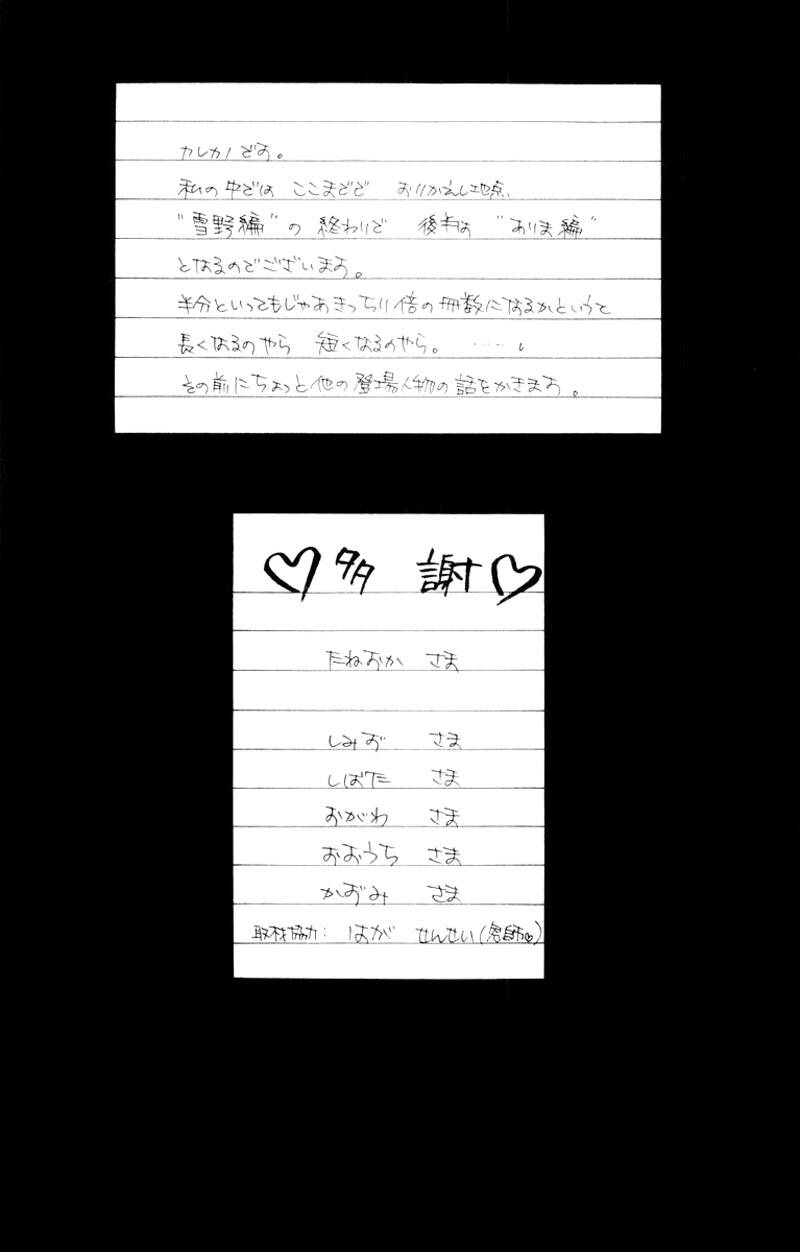 カレカノです。
私の中では ここまでで おりかえし地点
"雪野編"の 終わりで 後半は "ありま編"
となるのでございます。
半分といってもじゃあきっちり倍の冊数になるかというと
長くなるのやら 短くなるのやら。 ……。
その前にちょっと他の登場人物の話をかきます。
♡多 謝♡
たねおか さま
しみず さま
しばた さま
おがわ さま
おおうち さま
かずみ さま
取材協力: はが せんせい(恩師♡)